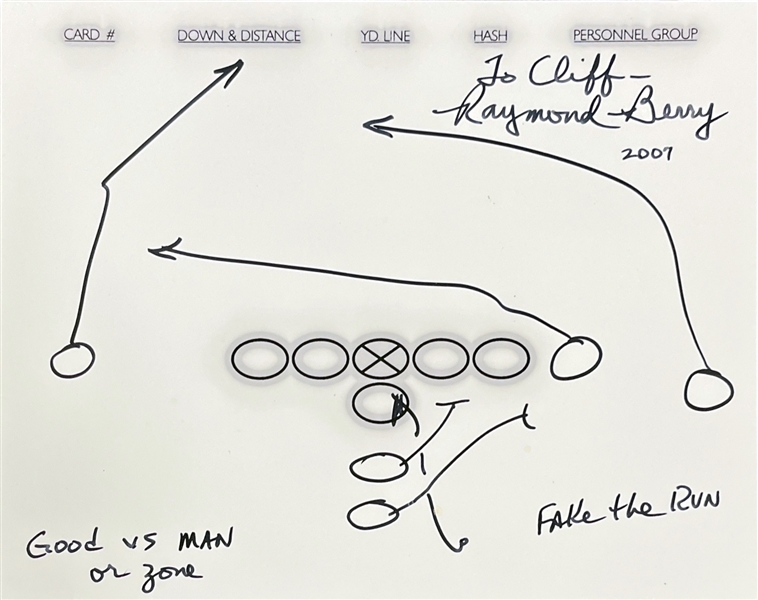 CARD # DOWN & DISTANCE YD. LINE HASH PERSONNEL GROUP
To Cliff-
Raymond Berry
2007
FAKE the RUN
Good vs MAN
or zone